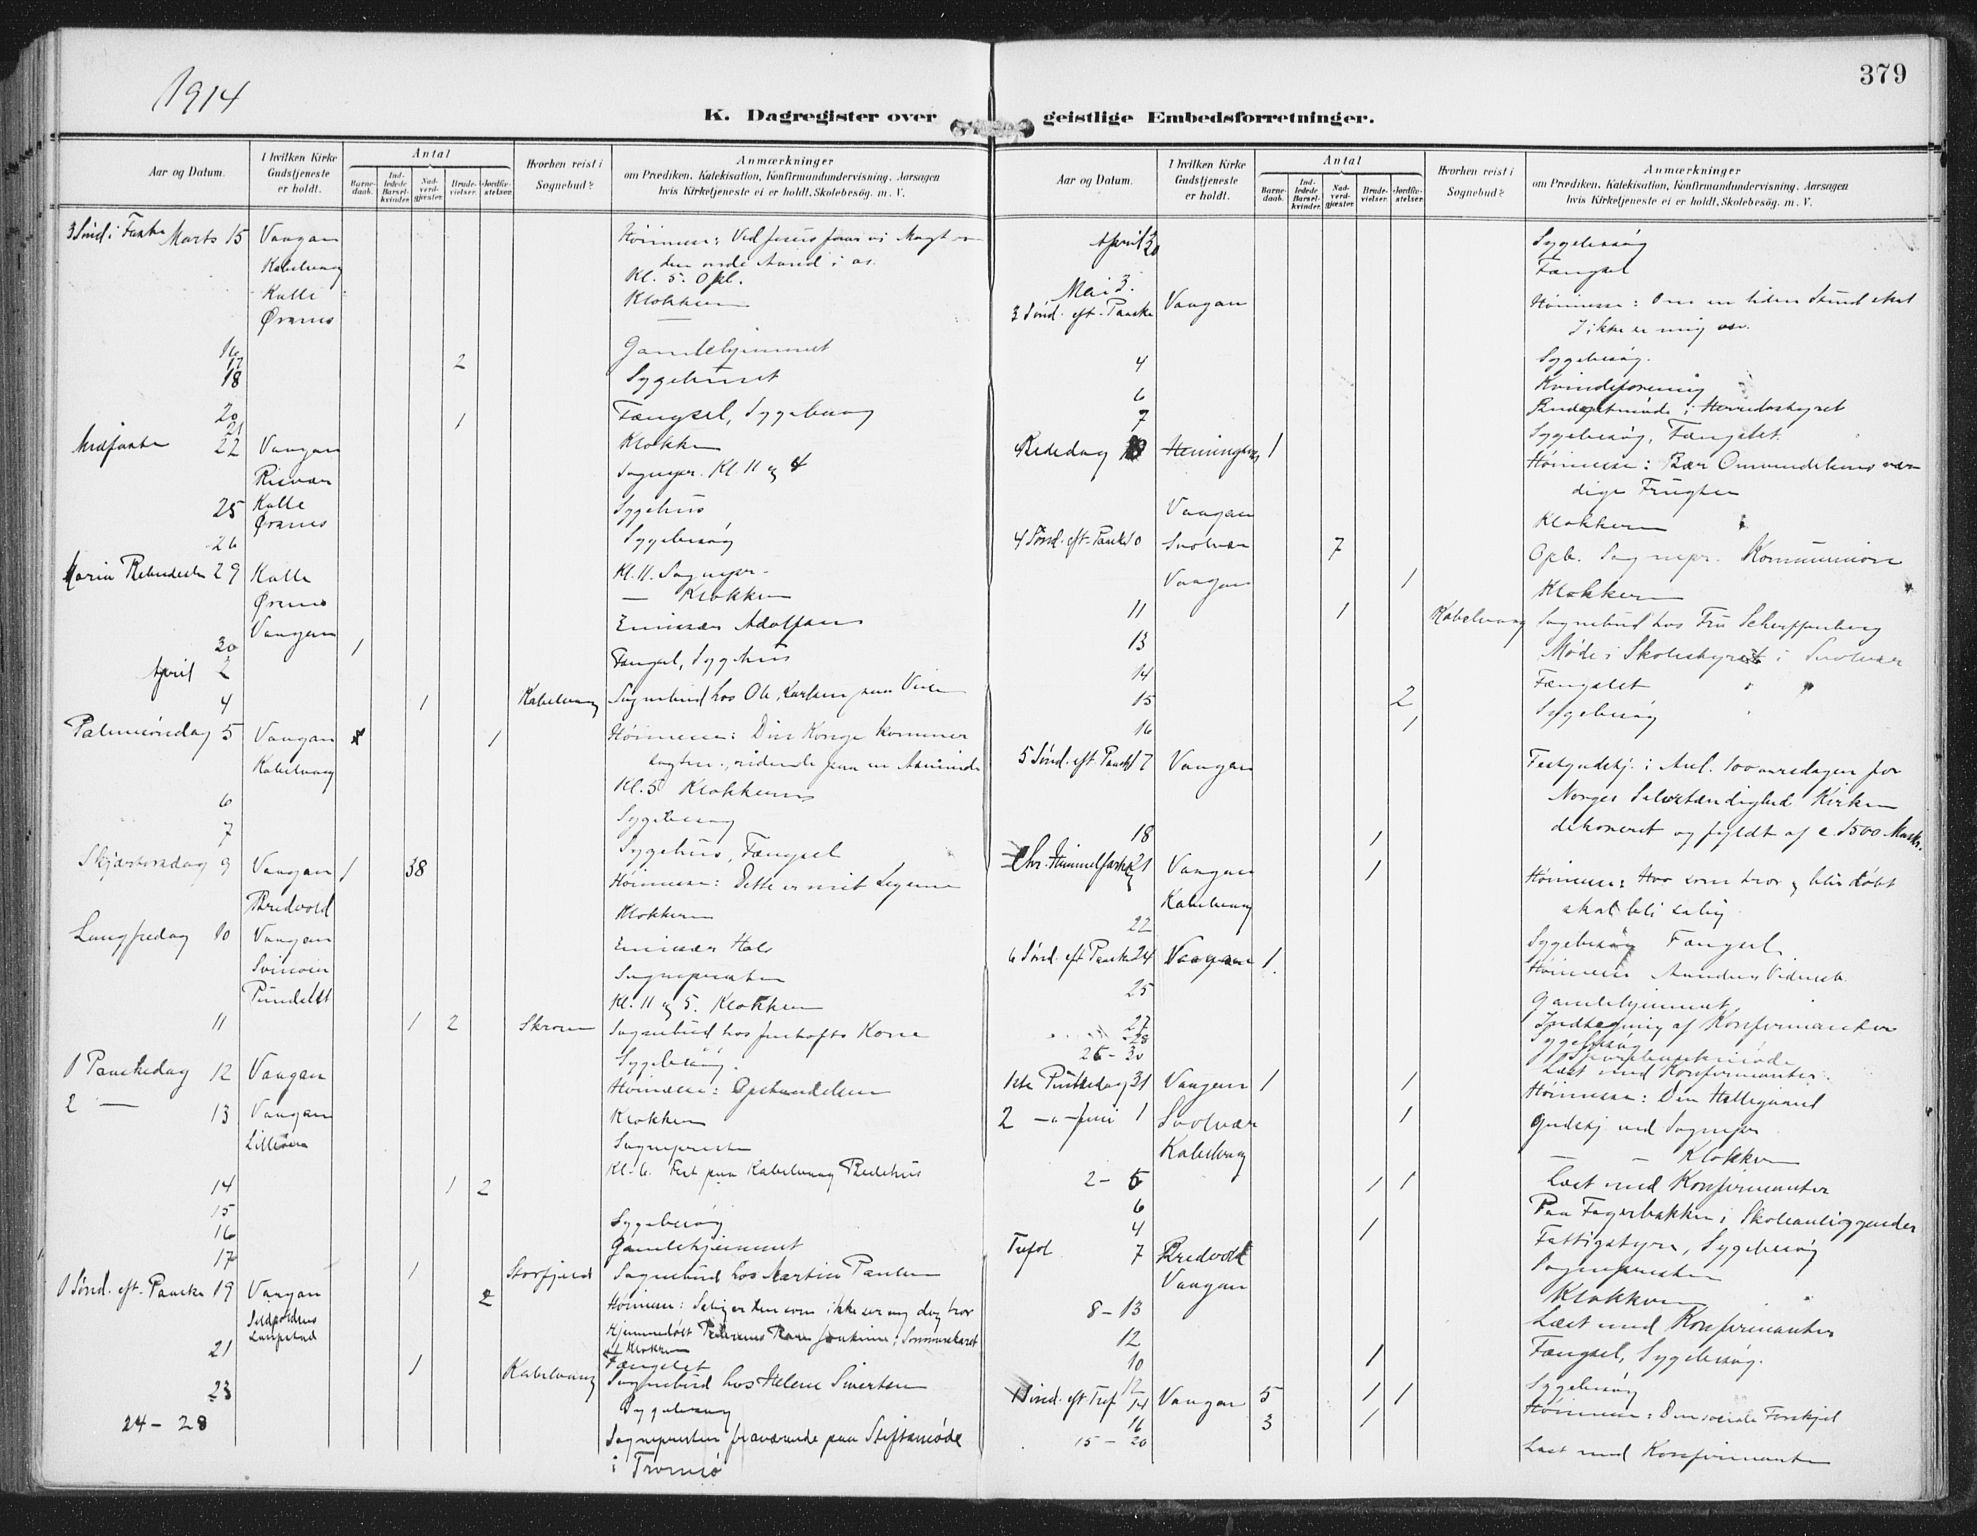 1914
379
K. Dagregister over geistlige Embedsforretninger.
Aar og Datum.
I hvilken Kirke Gudstjeneste er holdt.
Antal
Barnedaab.
Indledede Barselkvinder.
Nadverdgjæster.
Brudevielser.
Jordfæstelser.
Hvorhen reist i Sognebud?
Anmærkninger
om Prædiken, Katekisation, Konfirmandundervisning, Aarsagen
hvis Kirketjeneste ei er holdt, Skolebesøg. m. V.
3 Sønd i Faste Marts 15 Vaagan Høimesse: Ved Jesus faar vi Magt
Kabelvaag den onde Aand i os.
Kalle Kl. 5.
Ørsnes Klokkeren
16 Gamlehjemmet
17 2
18 Sygehuset
20 Fængsel, Sygebesøg
21 1
Midfaste 22 Vaagan Klokken
Risvær Sognepr. Kl. 11 og 4
25 Kalle Sygehus
Ørsnes
26 Sygebesøg
Maria 29 Kalle Kl. 11. Sognepr.
Ørsnes — Klokkeren
Vaagan Emissær Adolfsen
30 1
April 2 Fængsel, Sygehus
4 1 Kabelvaag Sognebud hos
Palmesøndag 5 Vaagan 1 Høimesse: Din Konge kommer
Kabelvaag ridende paa en
Kl. 5 Klokkeren
6 Sygebesøg
7 Sygehus, Fængsel
Skjærtorsdag 9 Vaagan 1 38 Høimesse: Dette er mit Legeme
Bredvold Klokkeren
Langfredag 10 Vaagan Emissær Hals
Svinøen Sognepresten
Pundslet Kl. 11 og 5. Klokkeren
11 1 2 Skroven Sognebud hos Kone
Sygebesøg.
1 Paaskedag 12 Vaagan Høimesse: Opstandelsen
2 — 13 Vaagan Klokkeren
Sognepresten
Kl. 6. Fest paa Kabelvaag Bedehus
14 1 2
15 Sygebesøg
16 Gamlehjemmet
17 1 Storfjeld Sognebud hos Martin Paulsen
1 Sønd. eft. Paaske 19 Vaagan 2 Høimesse: Salig er den som ikke ser og dog tror
Laupstad Hjemmedøbt
Klokkeren
21 Fængslet
1 Kabelvaag Sognebud hos Helene Sivertsen
23 Sygebesøg
24 – 28 Sognepresten fraværende paa Stiftsmøde
i Tromsø
Aar og Datum.
I hvilken Kirke Gudstjeneste er holdt.
Antal
Barnedaab.
Indledede Barselkvinder.
Nadverdgjæster.
Brudevielser.
Jordfæstelser.
Hvorhen reist i Sognebud?
Anmærkninger
om Prædiken, Katekisation, Konfirmandundervisning, Aarsagen
hvis Kirketjeneste ei er holdt, Skolebesøg. m. V.
April Sygebesøg
30 Fængsel
Mai 3.
3 Sønd. eft. Paaske Vaagan Høimesse: Om en liden Stund skal
I ikke se mig osv.
4 Sygebesøg.
6 Kvindeforening
7 Budgetmøde i Herredsstyret
Sygebesøg, Fængslet.
Bededag 8 Henningsvær 1 Høimesse: Bær Omvendelsens vær
dige Frugter
Vaagan Klokkeren
4 Sønd. eft. Paaske 10 Svolvær 7 Opb. Sognepr. Kommunion
Vaagan 1 Klokkeren
11 1 Kabelvaag Sognebud hos Fru Scherffenberg
13 Møde i Skolestyret i Svolvær
14 Fængslet
15 2 Sygebesøg
16 1
5 Sønd. eft. Paaske 17 Vaagan Festgudstj. i Anl. 100aarsdagen for
Norges Selvstændighed Kirken
dekoreret og fyldt af c. 1500 Msk.
18 1
Chr. Himmelfartsdag 21 Vaagan 1 Høimesse: Hvo som tror og blir døbt
Kabelvaag skal bli salig
22 Sygebesøg Fængsel
6 Sønd. eft Paaske 24 Vaagan 1. Høimesse Aandens Vidnesb.
25 Gamlehjemmet
27 Indtegning af Konfirmanter
28 Sygebesøg
26 – 30 Læst med Konfirmanter.
1ste Pintsedag 31 Vaagan 1 1 Høimesse: Den Helligaand
2 –"– Juni 1 Svolvær 1 Gudstj ved Sognepr
Kabelvaag — — Klokkeren
2 – 5 1 1 Læst med Konfirmanter
6 Paa Fagerbakken i Skoleanliggender
4 1 Fattigstyre, Sygebesøg
Trefol 7 Bredvold Sognepresten
Vaagan Klokkeren
8 – 13 Læst med Konfirmanter
12 Fængsel, Sygebesøg.
10 1
12 Sygebesøg
1 Sønd. eft Tref 14 Vaagan 5 1 1 Høimesse: Den sociale Forskjel
16 3 1
15 – 20 Læst med Konfirmanter